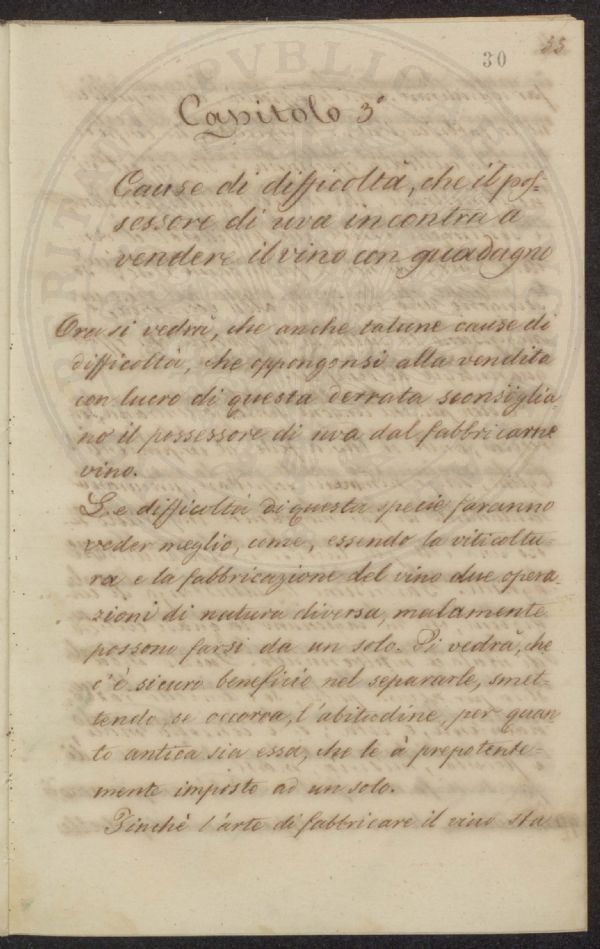 30 55
Capitolo 3°
Cause di difficoltà, che il pos-
sessore di uva incontra a
vendere il vino con guadagno
Ora si vedrà, che anche talune cause di
difficoltà, che oppongonsi alla vendita
con lucro di questa derrata sconsiglia
no il possessore di uva dal fabbricarne
vino.
Le difficoltà di questa specie faranno
veder meglio, come, essendo la viticoltu-
ra e la fabbricazione del vino due opera-
zioni di natura diversa, malamente
possono farsi da un solo. Si vedrà, che
c'è sicuro beneficio nel separarle, smet-
tendo, se occorra, l'abitudine, per quan
to antica sia essa, che le à prepotente-
mente imposte ad un solo.
Finchè l'arte di fabbricare il vino sta